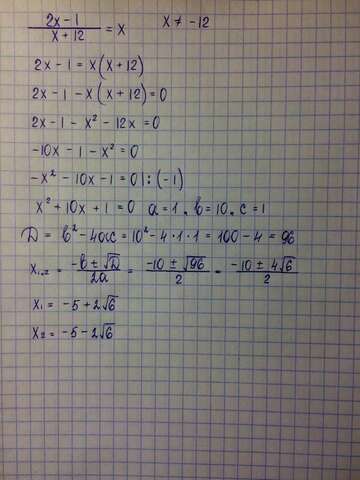 (2x - 1)/(x + 12) = x    x ≠ -12
2x - 1 = x(x + 12)
2x - 1 - x(x + 12) = 0
2x - 1 - x² - 12x = 0
-10x - 1 - x² = 0
-x² - 10x - 1 = 0 | : (-1)
x² + 10x + 1 = 0  a = 1, b = 10, c = 1
D = b² - 4ac = 10² - 4·1·1 = 100 - 4 = 96
x₁,₂ = (-b ± √D)/(2a) = (-10 ± √96)/2 = (-10 ± 4√6)/2
x₁ = -5 + 2√6
x₂ = -5 - 2√6